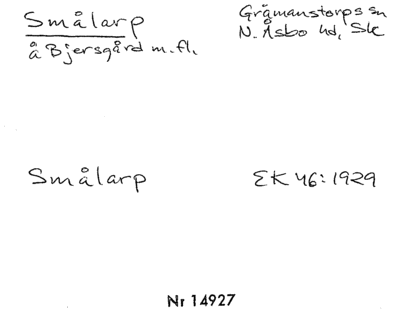 Smålarp
å Bjersgård m.fl.
Gråmanstorps sn
N. Åsbo hd, Sk
Smålarp
EK 46:1929
Nr 14927